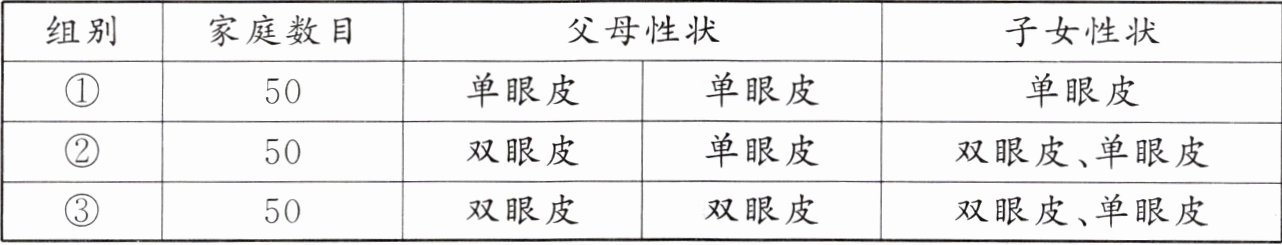 组别 家庭数目 父母性状 子女性状
① 50 单眼皮 单眼皮 单眼皮
② 50 双眼皮 单眼皮 双眼皮、单眼皮
③ 50 双眼皮 双眼皮 双眼皮、单眼皮